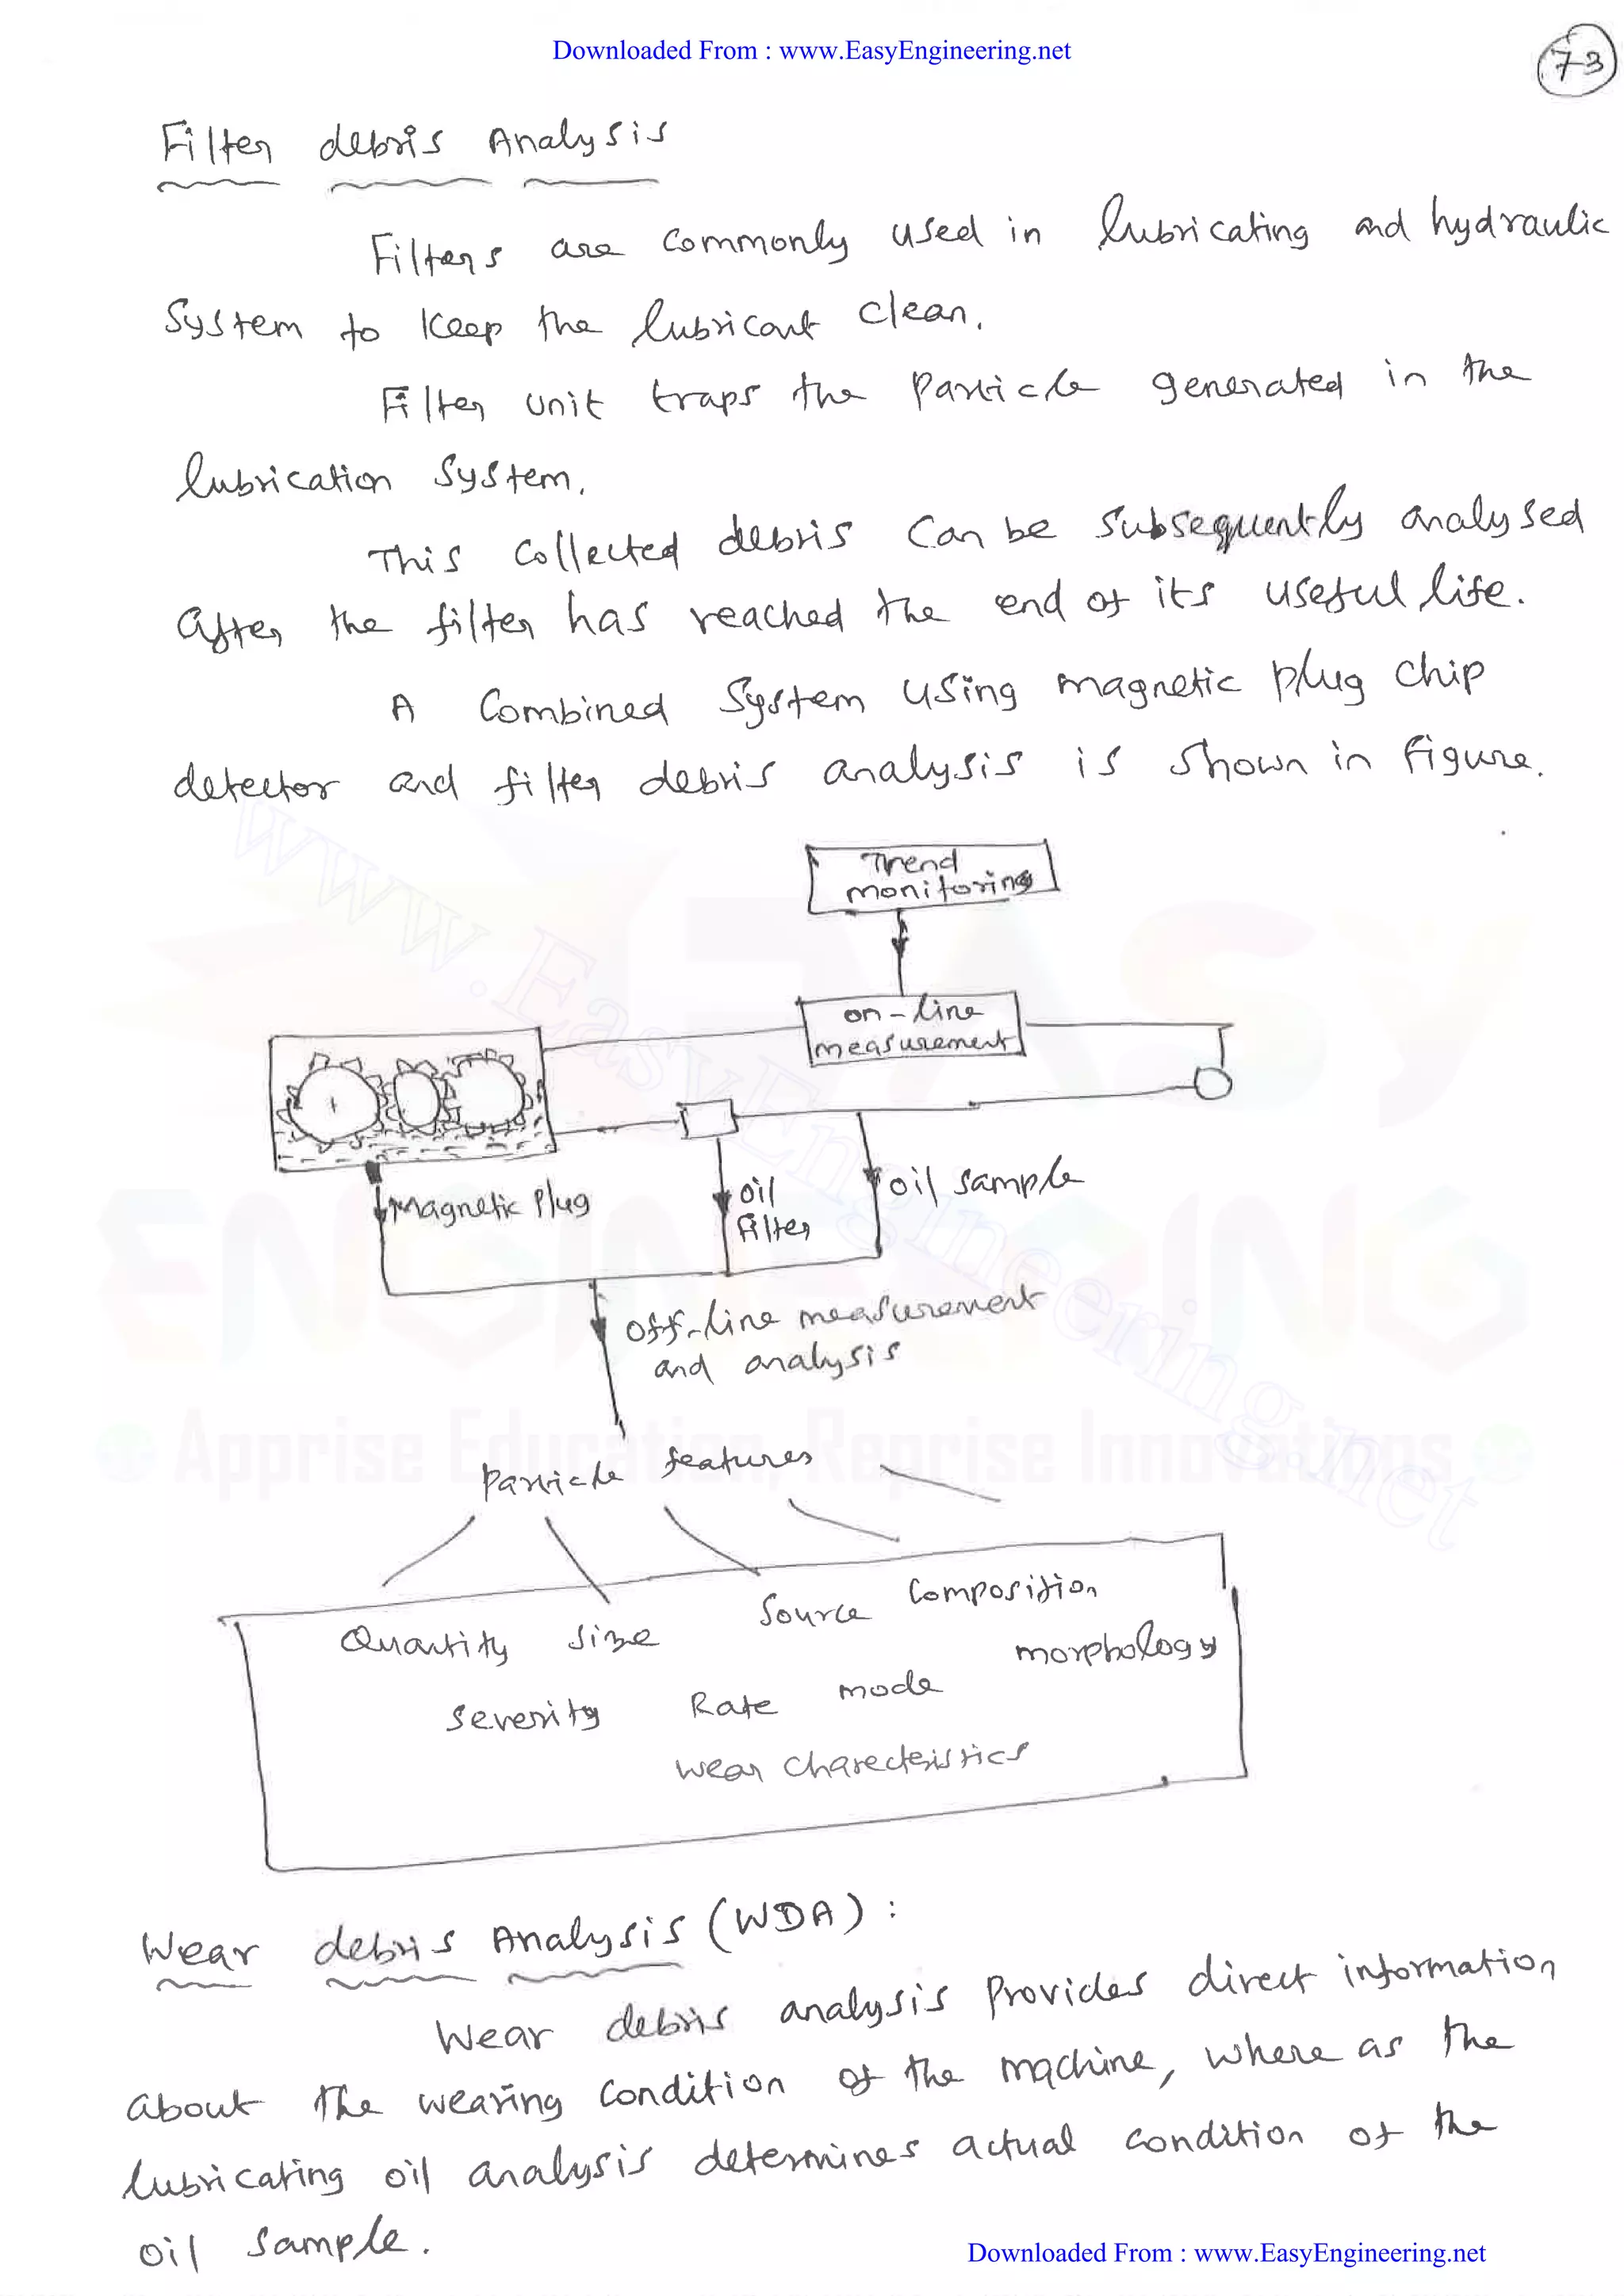 Downloaded From : www.EasyEngineering.net
73
Filter debris Analysis
Filters are commonly used in lubricating and hydraulic
System to keep the lubricant clean.
Filter unit traps the particle generated in the
lubrication system.
This collected debris can be subsequently analysed
after the filter has reached the end of its useful life.
A Combined System using magnetic plug chip
detector and filter debris analysis is shown in figure.
Trend
monitoring
on-line
measurement
Magnetic plug
oil
filter
oil sample
off-line measurement
and analysis
particle features
Quantity size Source Composition
severity Rate mode morphology
wear charecteristics
Wear debris Analysis (WDA) :
Wear debris analysis provides direct information
about the wearing condition of the machine, where as the
lubricating oil analysis determines actual condition of the
oil sample.
www.EasyEngineering.net
EASY
ENGINEERING
Apprise Education, Reprise Innovations
Downloaded From : www.EasyEngineering.net